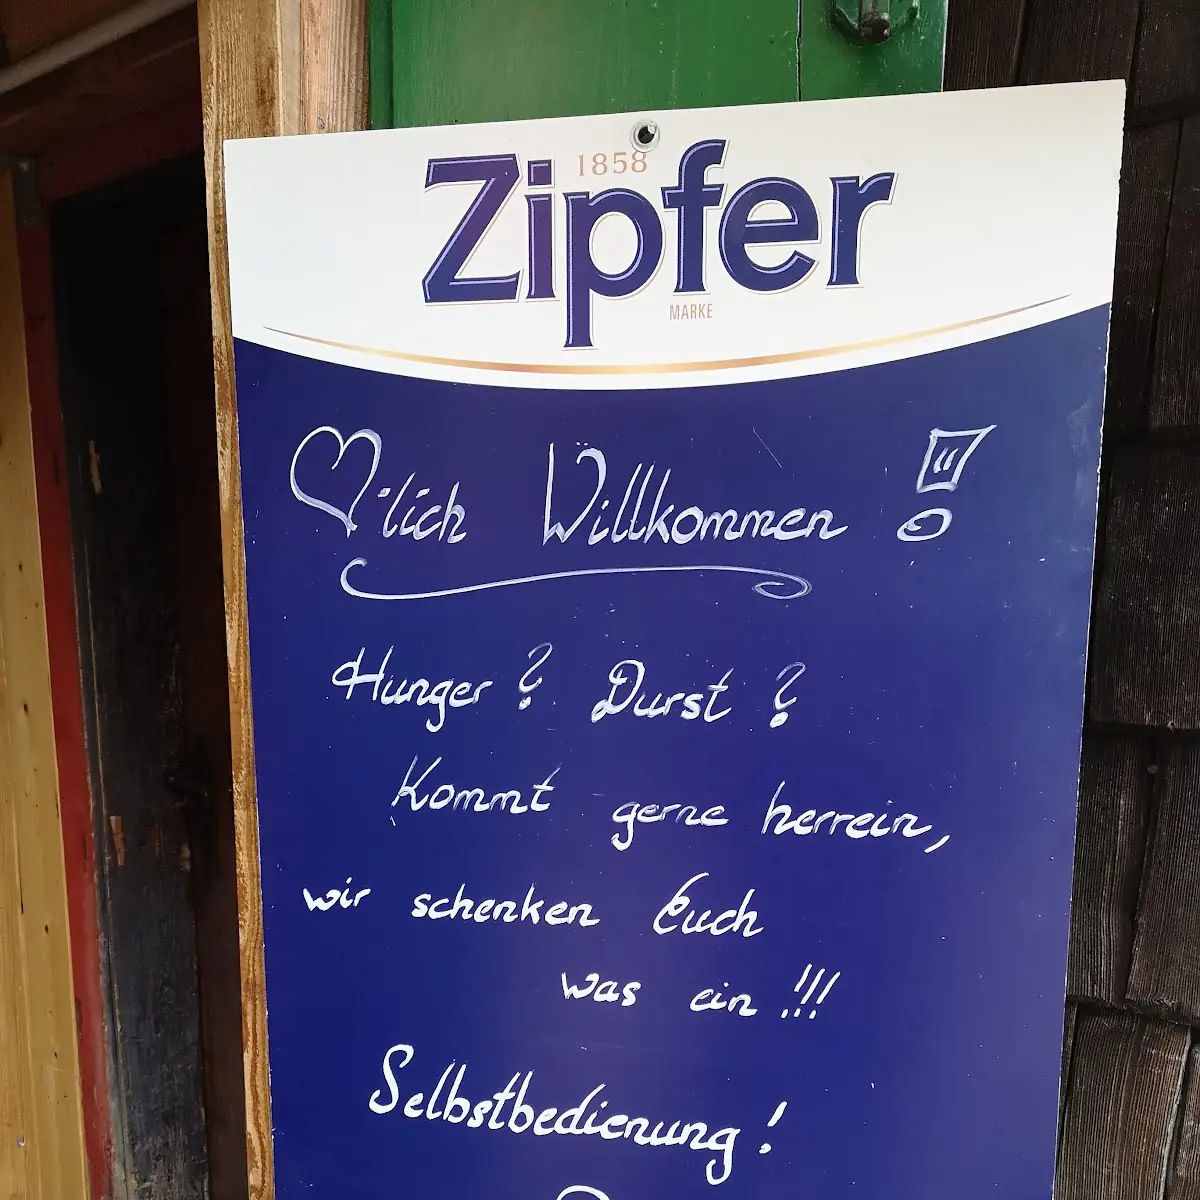 1858
Zipfer
MARKE
♡'lich Willkommen !
Hunger ? Durst ?
Kommt gerne herrein,
wir schenken Euch
was ein !!!
Selbstbedienung !